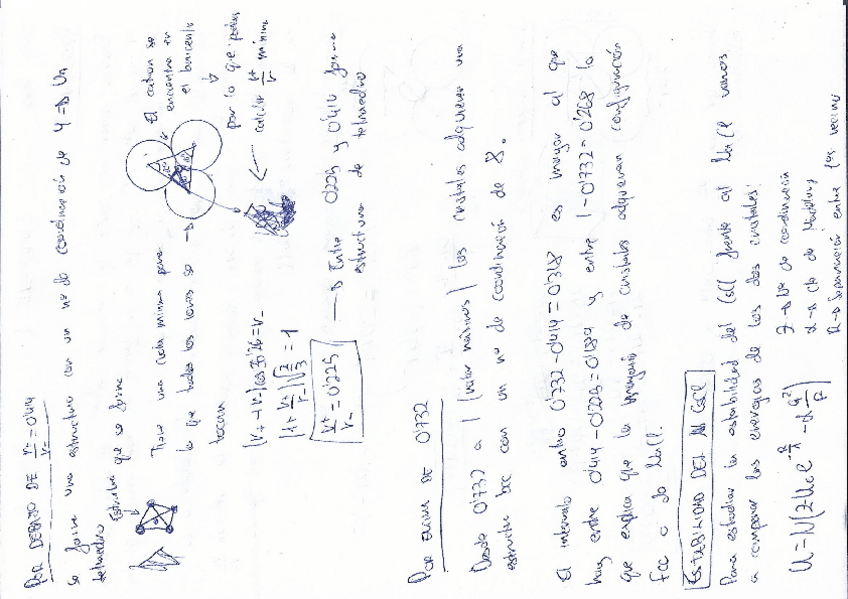 POR DEBAJO DE r+/r- = 0'414
Se forma una estructura con un nº de coordinación de 4 => Un
tetraedro
Estructura que se forma
Tiene una cota mínima para
la que todos los iones se
tocan
El cation se
encuentra en
el baricentro
por lo que podemos
calcular r+/r- mínimo
(r+ + r-) cos 35'26 = r-
(1 + r+/r-) √(2/3) = 1
r+/r- = 0'225
→ Entre 0'225 y 0'414 forma
estructura de tetraedro
POR ENCIMA DE 0'732
Desde 0'732 a 1 (valor máximo) los cristales adquieren una
estructura bcc con un nº de coordinación de 8.
El intervalo entre 0'732 - 0'414 = 0'318 es mayor al que
hay entre 0'414 - 0'225 = 0'189 y entre 1 - 0'732 = 0'268 lo
que explica que la mayoría de cristales adquieran configuración
fcc o de NaCl.
ESTABILIDAD DEL CsCl
Para estudiar la estabilidad del CsCl frente al NaCl vamos
a comparar las energías de los dos cristales:
Z → Nº de coordinación
α → Cte de Madelung
R → Separación entre los vecinos